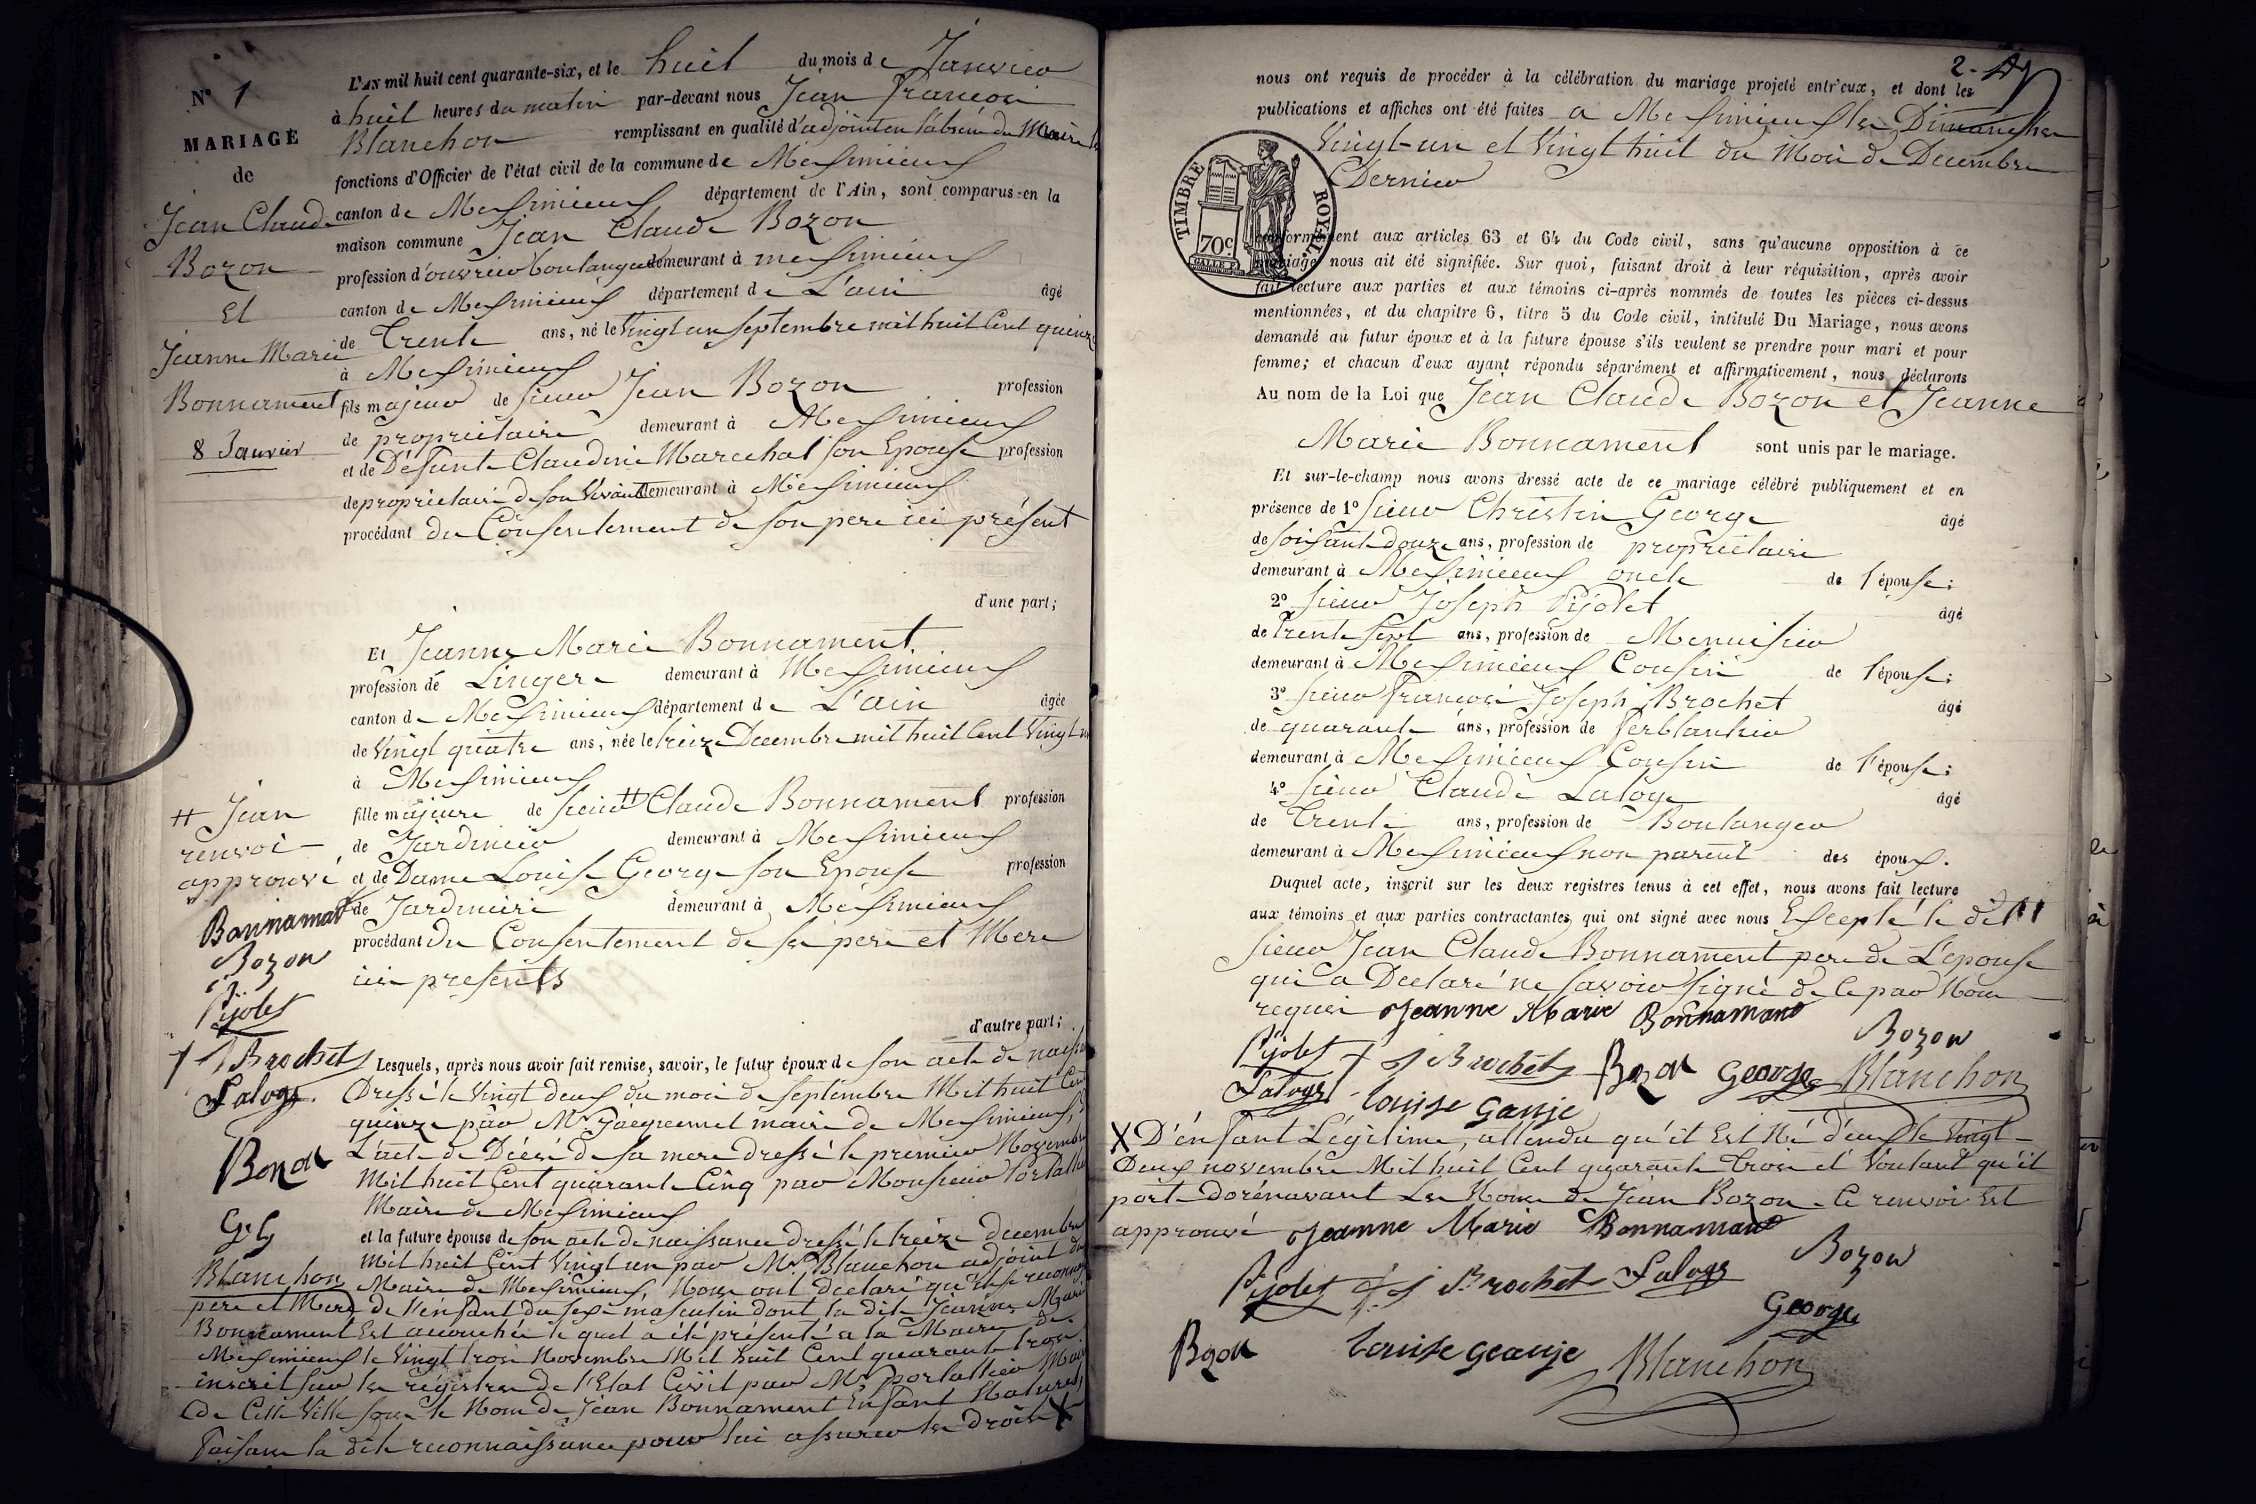 N° 1
MARIAGE
de
Jean Claude
Bozon
Et
Jeanne Marie
Bonnament
8 Janvier
L'AN mil huit cent quarante-six, et le huit du mois de Janvier
à huit heures du matin par-devant nous Jean François
Blanchon remplissant en qualité d'adjoint en l'absence du Maire les
fonctions d'Officier de l'état civil de la commune de Meximieux
canton de Meximieux département de l'Ain, sont comparus en la
maison commune Jean Claude Bozon
profession d'ouvrier boulanger demeurant à meximieux
canton de Meximieux département de L'ain âgé
de Trente ans, né le Vingt un septembre mil huit Cent quinze
à Meximieux
fils majeur de sieur Jean Bozon profession
de propriétaire demeurant à Meximieux
et de Défunte Claudine Marechal son Epouse profession
de propriétaire de son Vivant demeurant à Meximieux
procédant du Consentement de son pere ici présent
d'une part;
Et Jeanne Marie Bonnament
profession de Lingere demeurant à Meximieux
canton de Meximieux département de L'ain âgée
de Vingt quatre ans, née le treize Decembre mil huit Cent Vingt un
à Meximieux
fille majeure de sieur # Claude Bonnament profession
de Jardinier demeurant à Meximieux
et de Dame Louise George son Epouse profession
de Jardiniere demeurant à Meximieux
procédant du Consentement de ses pere et Mere
ici presents
d'autre part;
# Jean
renvoi
approuvé
Bonnamant
Bozon
Pijolet
f J Brochet
Laloge.
Bozon
G. G
Blanchon
Lesquels, après nous avoir fait remise, savoir, le futur époux de son acte de naissance
Dressé le Vingt deux du mois de septembre Mil huit Cent
quinze par Mr Jacquemet maire de Meximieux, de
L'acte de Décès de sa mere dressé le premier Novembre
Mil huit Cent quarante Cinq par Monsieur Portallier
Maire de Meximieux
et la future épouse de son acte de naissance dressé le treize decembre
Mil huit Cent Vingt un par Mr Blanchon adjoint du
Maire de Meximieux, Nous ont declaré qu'ils se reconnaissent
pere et Mere de l'enfant du sexe masculin dont la dite Jeanne Marie
Bonnament Est accouchée le quel a été présenté a la Mairie de
Meximieux le Vingt trois Novembre Mil huit Cent quarante trois
inscrit sur les régistres de l'Etat Civil par Mr portallier Maire
de Cette Ville sous le Nom de Jean Bonnament Enfant Naturel,
Faisant la dite reconnaissance pour lui assurer les droits X
2.
nous ont requis de procéder à la célébration du mariage projeté entr'eux, et dont les
publications et affiches ont été faites a Meximieux les Dimanches
Vingt-un et Vingt huit du Mois de Decembre
Dernier
TIMBRE ROYAL
70c
conformément aux articles 63 et 64 du Code civil, sans qu'aucune opposition à ce
mariage nous ait été signifiée. Sur quoi, faisant droit à leur réquisition, après avoir
fait lecture aux parties et aux témoins ci-après nommés de toutes les pièces ci-dessus
mentionnées, et du chapitre 6, titre 5 du Code civil, intitulé Du Mariage, nous avons
demandé au futur époux et à la future épouse s'ils veulent se prendre pour mari et pour
femme; et chacun d'eux ayant répondu séparément et affirmativement, nous déclarons
Au nom de la Loi que Jean Claude Bozon et Jeanne
Marie Bonnament sont unis par le mariage.
Et sur-le-champ nous avons dressé acte de ce mariage célébré publiquement et en
présence de 1° sieur Christin George âgé
de soixante douze ans, profession de propriétaire
demeurant à Meximieux oncle de l'épouse;
2° sieur Joseph Pijolet âgé
de trente sept ans, profession de Menuisier
demeurant à Meximieux Cousin de l'épouse;
3° sieur François Joseph Brochet âgé
de quarante ans, profession de ferblantier
demeurant à Meximieux Cousin de l'épouse;
4° sieur Claude Laloge âgé
de Trente ans, profession de Boulanger
demeurant à Meximieux non parent des époux.
Duquel acte, inscrit sur les deux registres tenus à cet effet, nous avons fait lecture
aux témoins et aux parties contractantes, qui ont signé avec nous Excepté le dit
sieur Jean Claude Bonnament pere de L'epouse
qui a Declaré ne savoir signé de Ce par Nous
requis Jeanne Marie Bonnamant
Bozon
Pijolet f J Brochet Bozon George Blanchon
Laloge Louise George
X D'enfant Légitime, attendu qu'il Est Né d'eux le Vingt
Deux novembre Mil huit Cent quarante Trois et Voulant qu'il
porte dorénavant Les Noms de Jean Bozon. Ce renvoi Est
approuvé Jeanne Marie Bonnamant
Bozon
Pijolet f. J Brochet Laloge
George
Bozon Louise George Blanchon